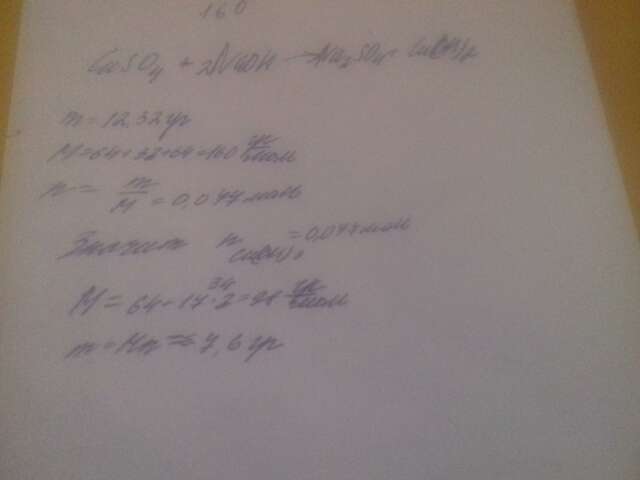 160
CuSO4 + 2NaOH → Na2SO4 + Cu(OH)2
m = 12,32 гр
M = 64 + 32 + 64 = 160 гр/моль
n = m/M = 0,077 моль
Значит n Cu(OH)2 = 0,077 моль
M = 64 + 17·2 = 98 гр/моль
34
m = Mn ≈ 7,6 гр